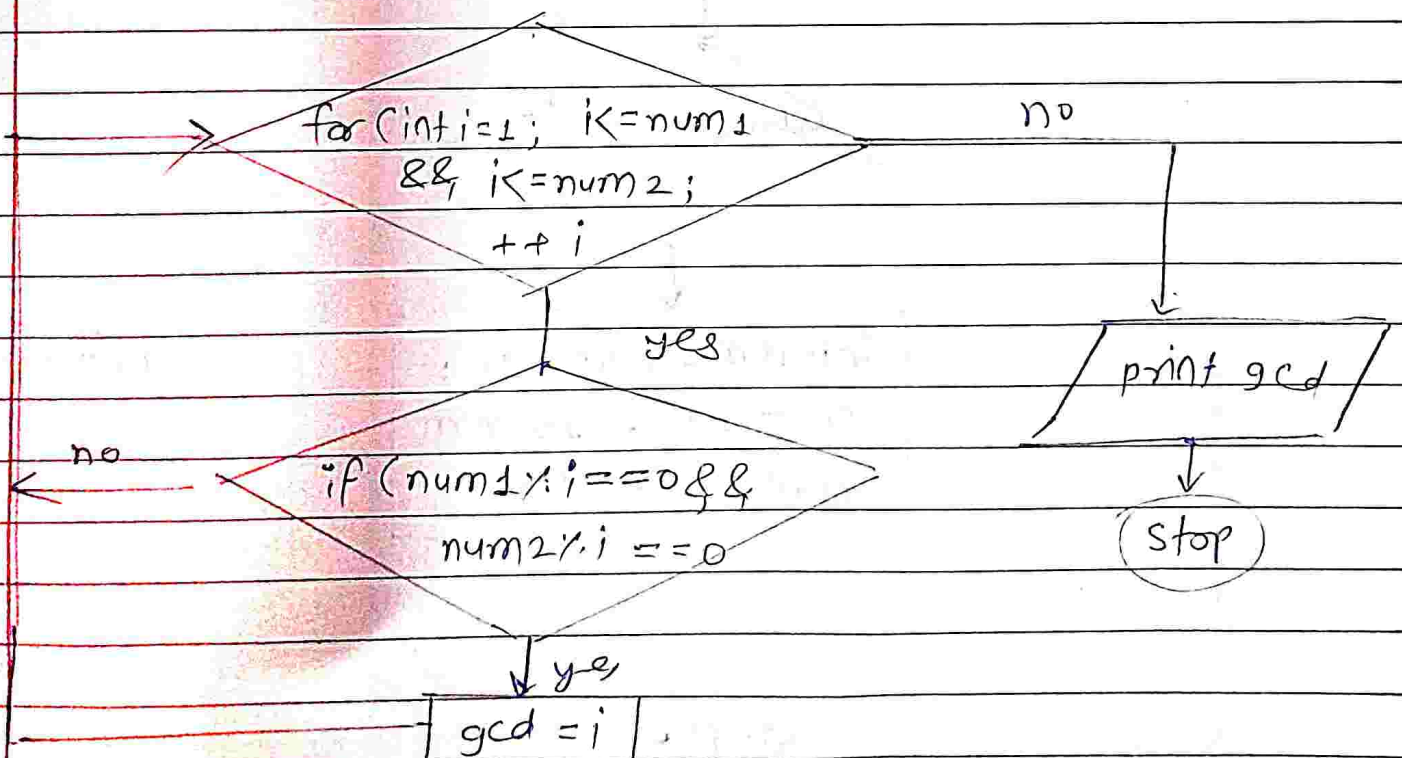 for (int i=1; i<=num1
&& i<=num2;
++i
no
yes
print gcd
no
if (num1%i==0 &&
num2%i==0
stop
yes
gcd = i